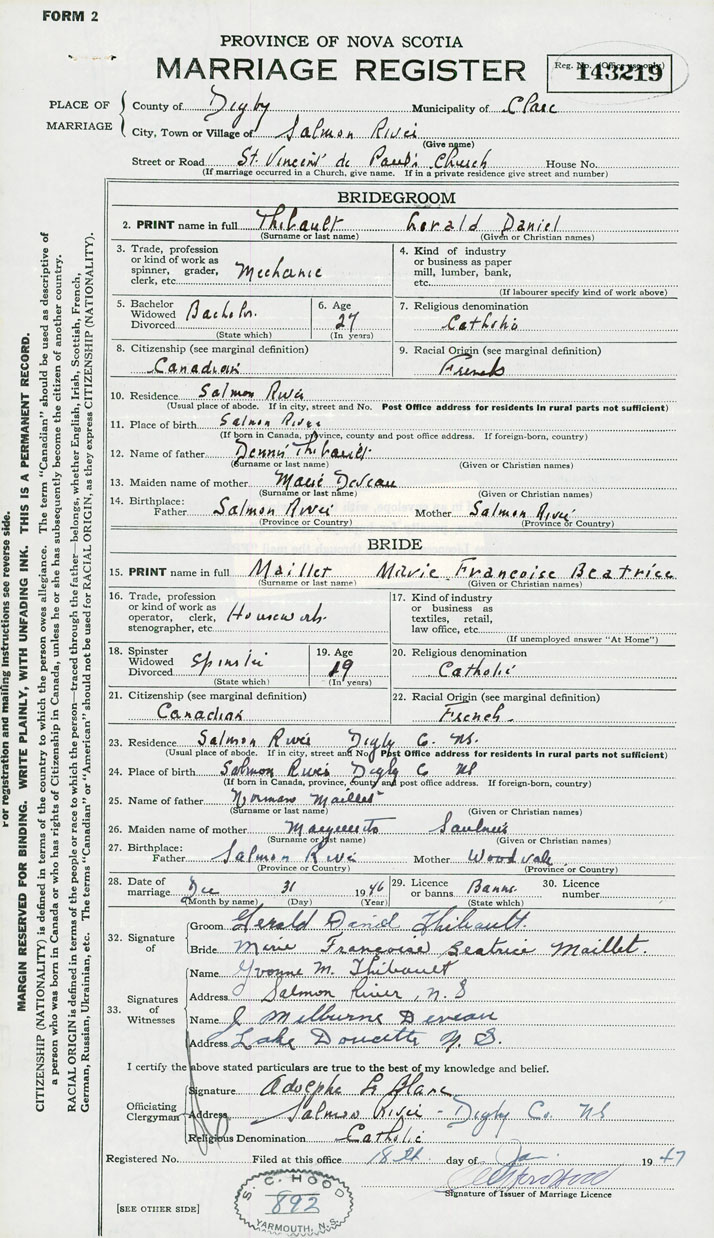 FORM 2
PROVINCE OF NOVA SCOTIA
MARRIAGE REGISTER
Reg. No. (Office use only)
143219
PLACE OF MARRIAGE
County of Digby Municipality of Clare
City, Town or Village of Salmon River
(Give name)
Street or Road St. Vincent de Paul's Church House No.
(If marriage occurred in a Church, give name. If in a private residence give street and number)
BRIDEGROOM
2. PRINT name in full Thibault Gerald Daniel
(Surname or last name) (Given or Christian names)
3. Trade, profession or kind of work as spinner, grader, clerk, etc. Mechanic
4. Kind of industry or business as paper mill, lumber, bank, etc.
(If labourer specify kind of work above)
5. Bachelor Widowed Divorced Bachelor
(State which)
6. Age 27
(In years)
7. Religious denomination Catholic
8. Citizenship (see marginal definition) Canadian
9. Racial Origin (see marginal definition) French
10. Residence Salmon River
(Usual place of abode. If in city, street and No. Post Office address for residents in rural parts not sufficient)
11. Place of birth Salmon River
(If born in Canada, province, county and post office address. If foreign-born, country)
12. Name of father Dennis Thibault
(Surname or last name) (Given or Christian names)
13. Maiden name of mother Marie Deveau
(Surname or last name) (Given or Christian names)
14. Birthplace: Father Salmon River Mother Salmon River
(Province or Country) (Province or Country)
BRIDE
15. PRINT name in full Maillet Marie Françoise Beatrice
(Surname or last name) (Given or Christian names)
16. Trade, profession or kind of work as operator, clerk, stenographer, etc. Housework
17. Kind of industry or business as textiles, retail, law office, etc.
(If unemployed answer "At Home")
18. Spinster Widowed Divorced Spinster
(State which)
19. Age 19
(In years)
20. Religious denomination Catholic
21. Citizenship (see marginal definition) Canadian
22. Racial Origin (see marginal definition) French
23. Residence Salmon River Digby C. NS.
(Usual place of abode. If in city, street and No. Post Office address for residents in rural parts not sufficient)
24. Place of birth Salmon River Digby C NS
(If born in Canada, province, county and post office address. If foreign-born, country)
25. Name of father Norman Maillet
(Surname or last name) (Given or Christian names)
26. Maiden name of mother Marguerite Saulnier
(Surname or last name) (Given or Christian names)
27. Birthplace: Father Salmon River Mother Woodvale
(Province or Country) (Province or Country)
28. Date of marriage Dec 31 1946
(Month by name) (Day) (Year)
29. Licence or banns Banns
(State which)
30. Licence number
32. Signature of
Groom Gerald David Thibault.
Bride Marie Françoise Beatrice Maillet.
33. Signatures of Witnesses
Name Yvonne M. Thibault
Address Salmon River, N.S
Name Melburne Deveau
Address Lake Doucette N.S.
I certify the above stated particulars are true to the best of my knowledge and belief.
Officiating Clergyman
Signature Adolphe Le Blanc
Address Salmon River - Digby Co. NS
Religious Denomination Catholic
Registered No. Filed at this office 18th day of Jan. 1947
Signature of Issuer of Marriage Licence
[SEE OTHER SIDE]
S. C. HOOD
892
YARMOUTH, N.S.
For registration and mailing instructions see reverse side.
MARGIN RESERVED FOR BINDING. WRITE PLAINLY, WITH UNFADING INK. THIS IS A PERMANENT RECORD.
CITIZENSHIP (NATIONALITY) is defined in terms of the country to which the person owes allegiance. The term "Canadian" should be used as descriptive of
a person who was born in Canada or who has rights of Citizenship in Canada, unless he or she has subsequently become the citizen of another country.
RACIAL ORIGIN is defined in terms of the people or race to which the person—traced through the father—belongs, whether English, Irish, Scottish, French,
German, Russian, Ukrainian, etc. The terms "Canadian" or "American" should not be used for RACIAL ORIGIN, as they express CITIZENSHIP (NATIONALITY).